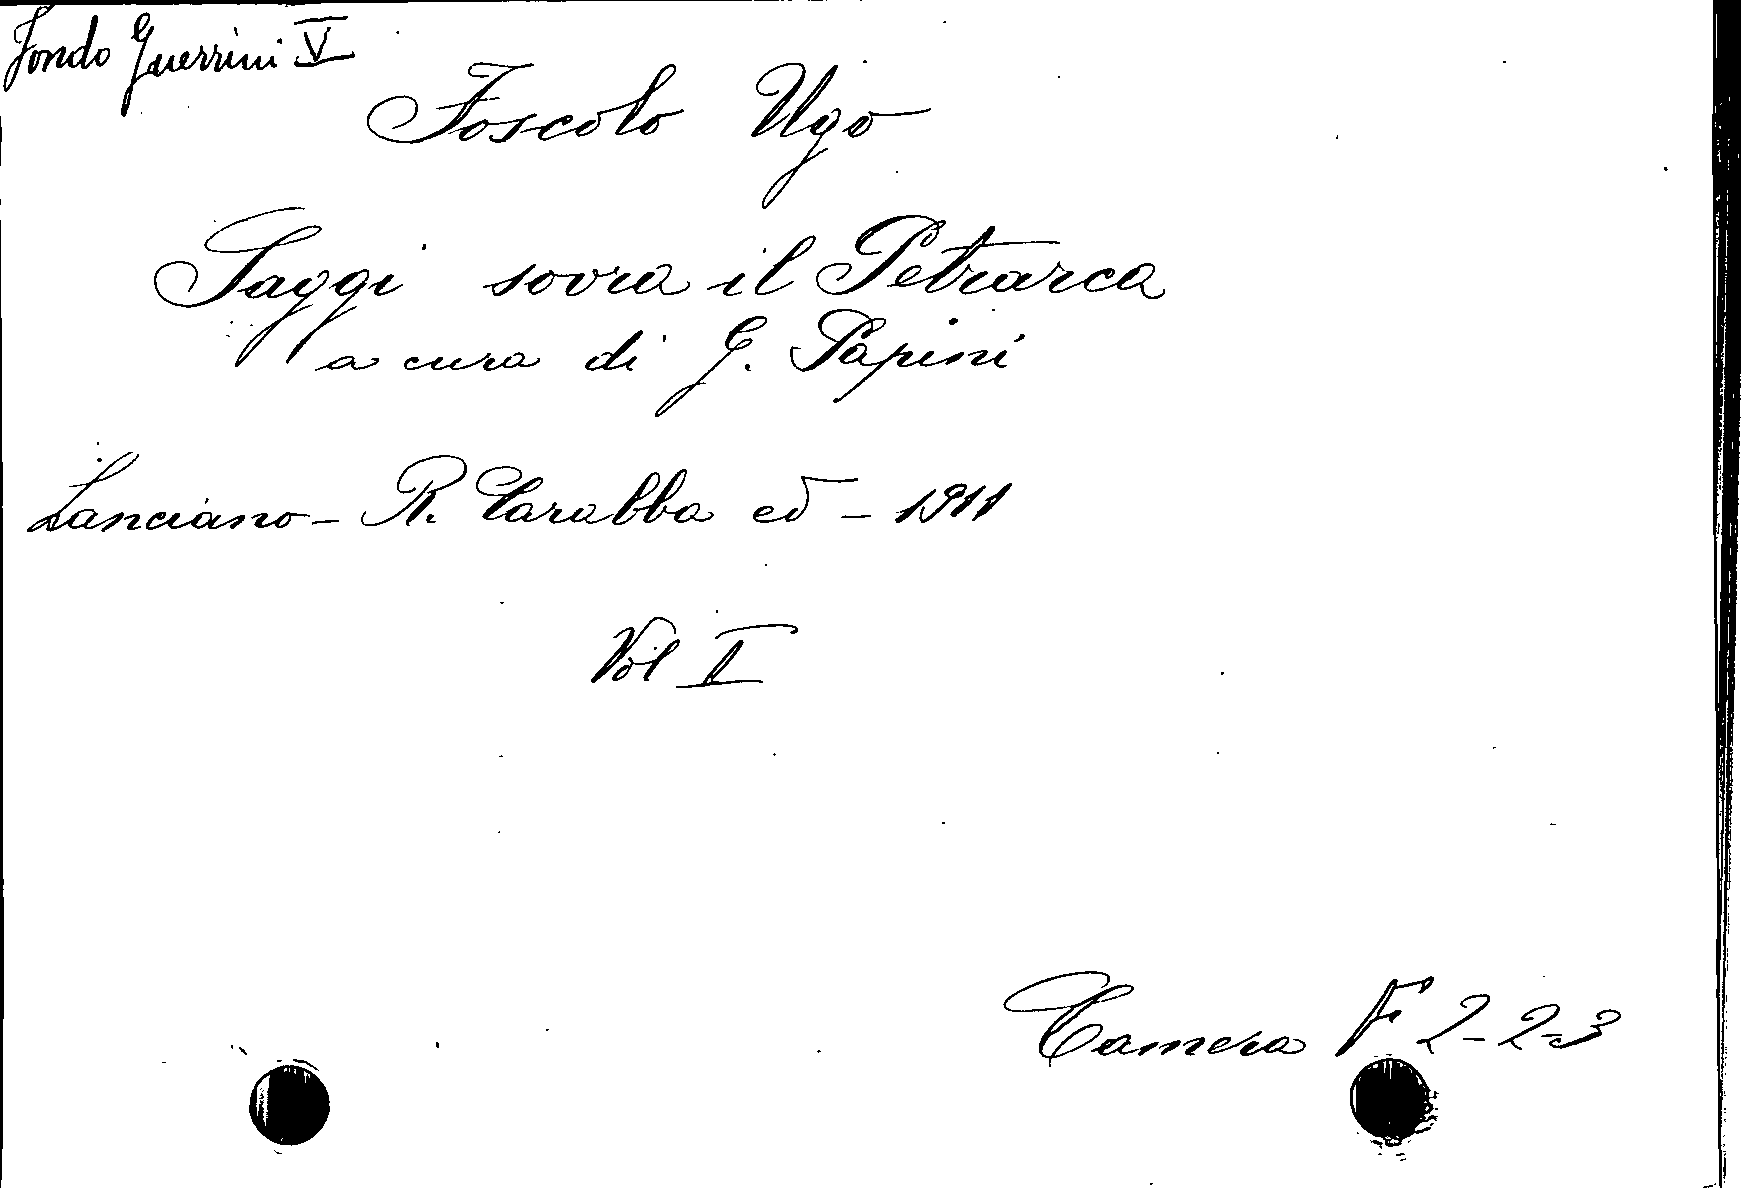 Fondo Guerrini V
Foscolo Ugo
Saggi sovra il Petrarca
a cura di G. Papini
Lanciano - R. Carabba ed - 1911
Vol I
Camera F 2-2-3